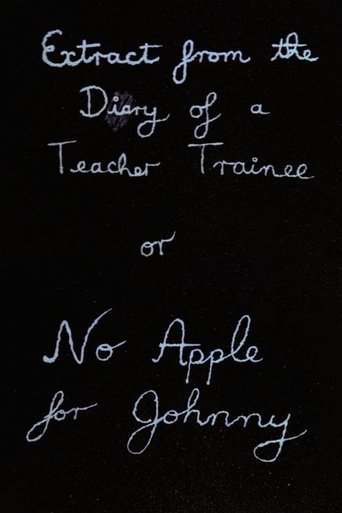 Extract from the
Diary of a
Teacher Trainee
or
No Apple
for Johnny